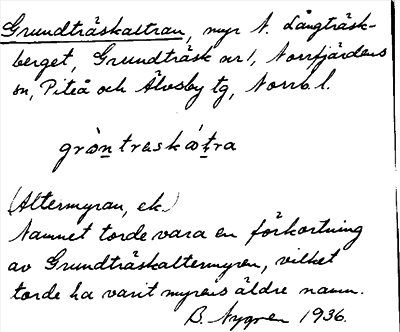 Grundträskaltran, myr N. Långträsk-
berget, Grundträsk nr 1, Norrfjärdens
sn, Piteå och Älvsby tg, Norrb. l.
gròntraskàtra
(Altermyran, ek.)
Namnet torde vara en förkortning
av Grundträskaltermyren, vilket
torde ha varit myrens äldre namn.
B. Nygren 1936.